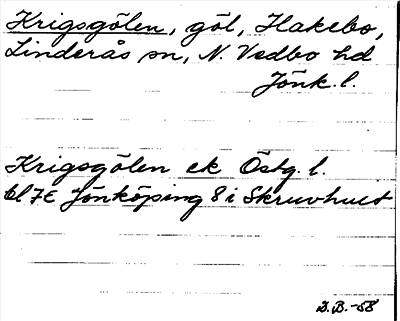 Krigsgölen, göl, Hakebo,
Linderås sn, N. Vedbo hd
Jönk. l.
Krigsgölen ek Östg. l.
bl 7E Jönköping 8 i Skruvhult
D.B.-58